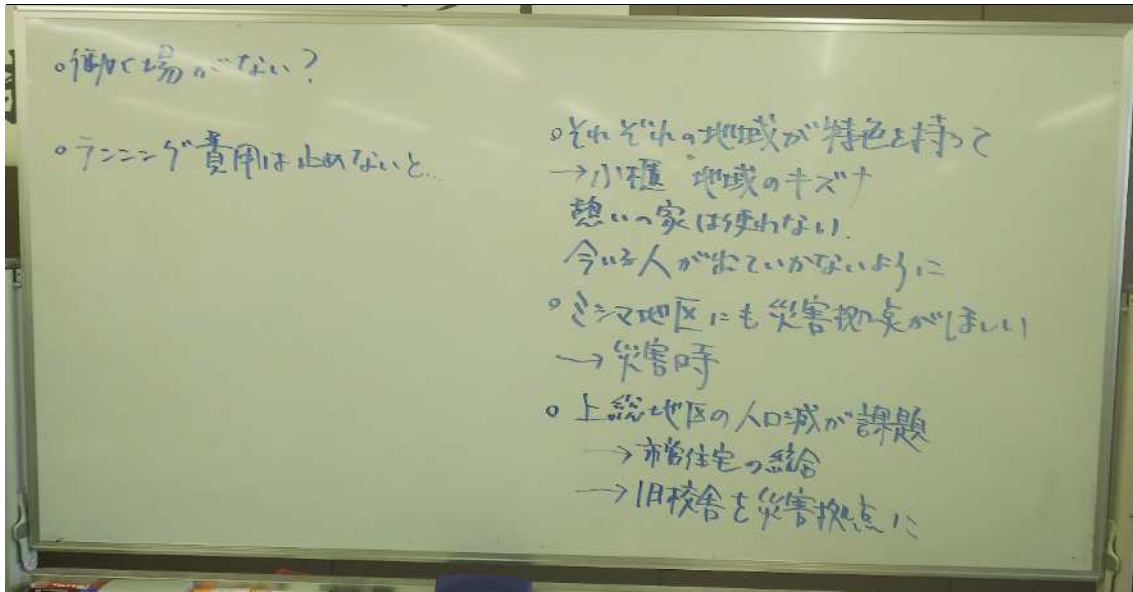 ○働く場がない?
○ランニング費用は止めないと…
○それぞれの地域が特色を持って
→小櫃 地域のキズナ
憩いの家は使わない.
今いる人が出ていかないように
○ミシマ地区にも災害拠点がほしい
→災害時
○上総地区の人口減が課題
→市営住宅の統合
→旧校舎を災害拠点に